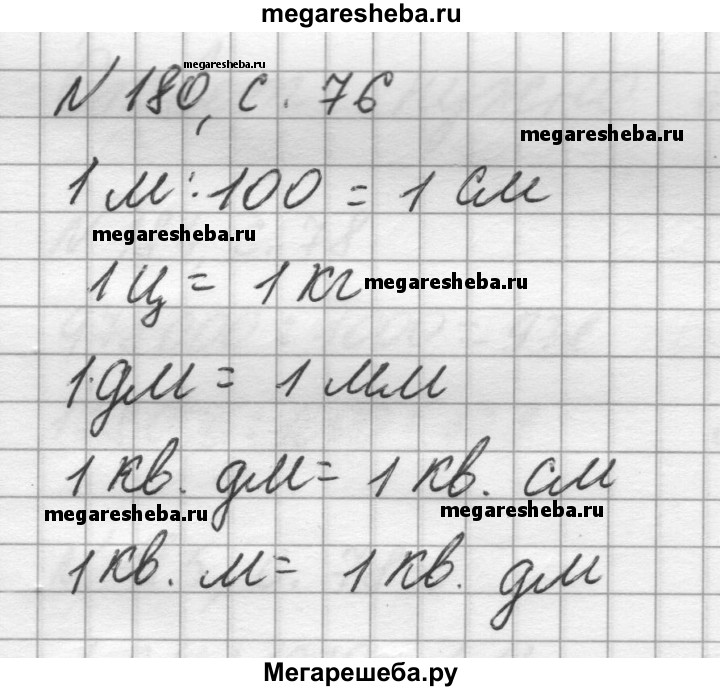 megaresheba.ru
megaresheba.ru
N 180, с. 76
megaresheba.ru
1 м : 100 = 1 см
megaresheba.ru
1 ц = 1 кг
megaresheba.ru
1 дм = 1 мм
1 кв. дм = 1 кв. см
megaresheba.ru
megaresheba.ru
1 кв. м = 1 кв. дм
Мегарешеба.ру